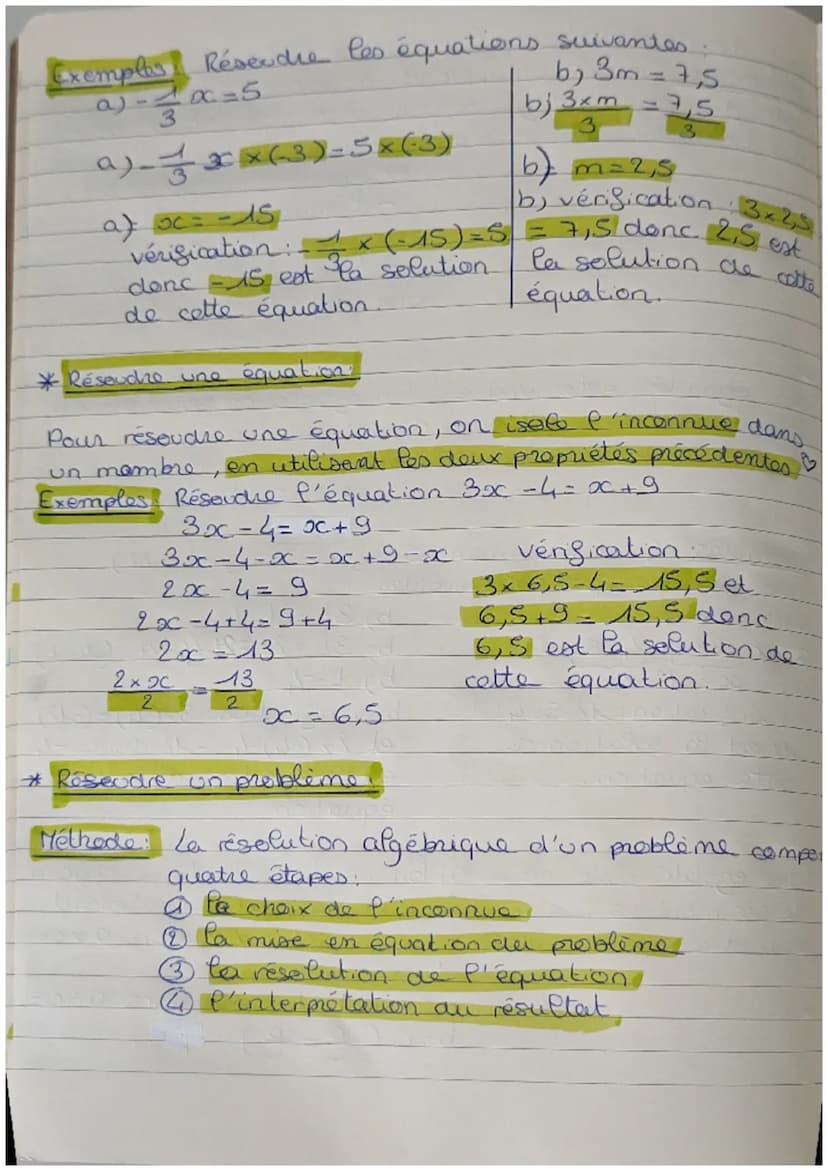 Exemples: Résoudre les équations suivantes:
a) -1/3 x = 5
a) -1/3 x ×(-3) = 5 ×(-3)
a) x = -15
vérification: -1/3 × (-15) = 5
donc -15 est la solution
de cette équation.
b) 3m = 7,5
b) 3×m/3 = 7,5/3
b) m = 2,5
b) vérification: 3×2,5
= 7,5 donc 2,5 est
la solution de cette
équation.
* Résoudre une équation:
Pour résoudre une équation, on isole l'inconnue dans
un membre, en utilisant les deux propriétés précédentes ♡
Exemples: Résoudre l'équation 3x - 4 = x + 9
3x - 4 = x + 9
3x - 4 - x = x + 9 - x
2x - 4 = 9
2x - 4 + 4 = 9 + 4
2x = 13
2×x/2 = 13/2
x = 6,5
vérification:
3×6,5-4 = 15,5 et
6,5+9 = 15,5 donc
6,5 est la solution de
cette équation.
* Résoudre un problème:
Méthode: La résolution algébrique d'un problème compo
quatre étapes:
① le choix de l'inconnue
② la mise en équation du problème
③ la résolution de l'équation
④ l'interprétation du résultat